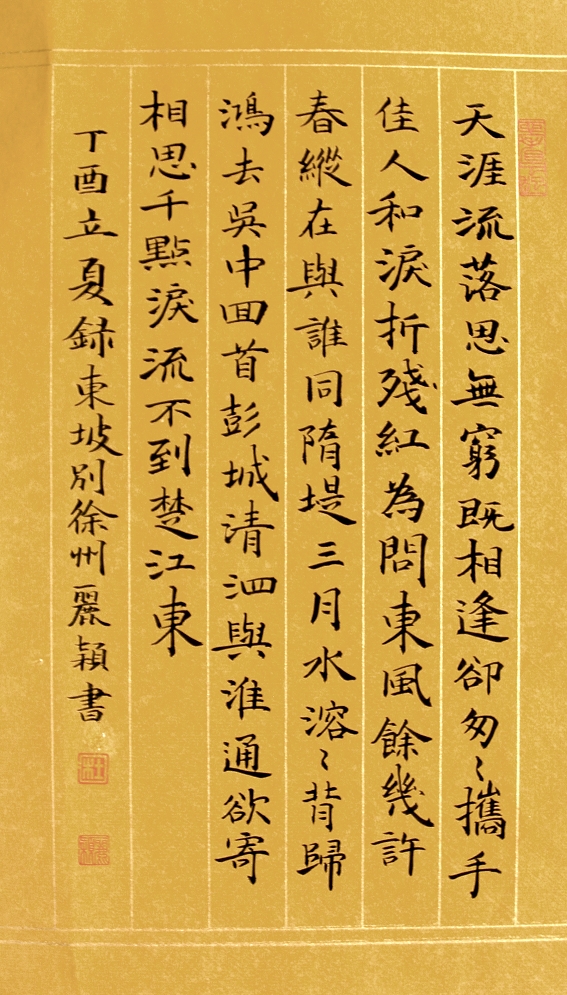 天涯流落思無窮既相逢卻匆〻攜手
佳人和淚折殘紅為問東風餘幾許
春縱在與誰同隋堤三月水溶〻背歸
鴻去吳中回首彭城清泗與淮通欲寄
相思千點淚流不到楚江東
丁酉立夏録東坡別徐州麗穎書